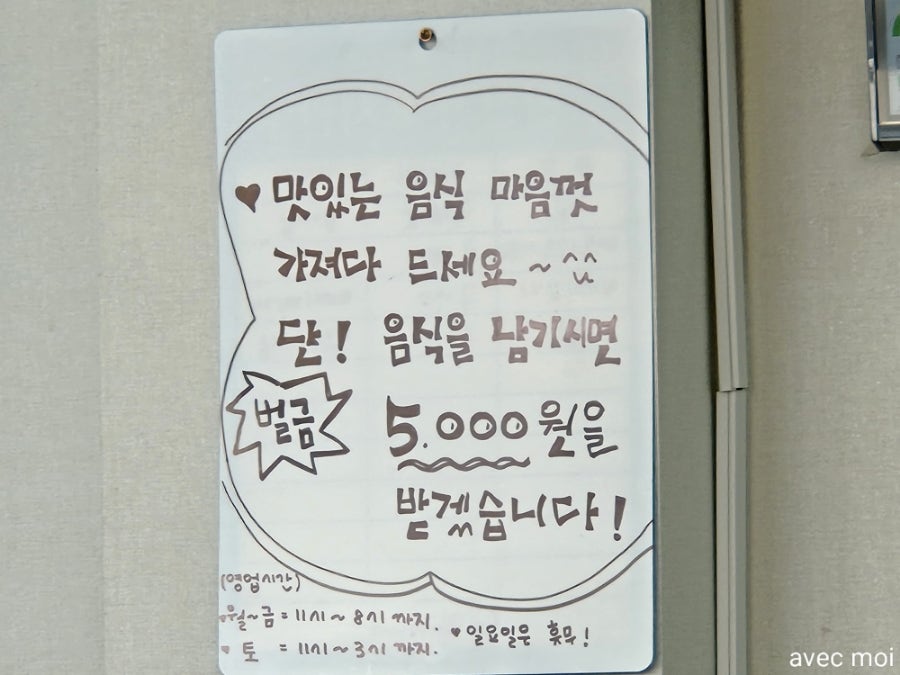 ♥ 맛있는 음식 마음껏
가져다 드세요 ~ ^^
단! 음식을 남기시면
벌금 5.000원을
받겠습니다!
(영업시간)
•월~금 = 11시 ~ 8시 까지.
• 토 = 11시 ~ 3시 까지.
♥ 일요일은 휴무!
avec moi